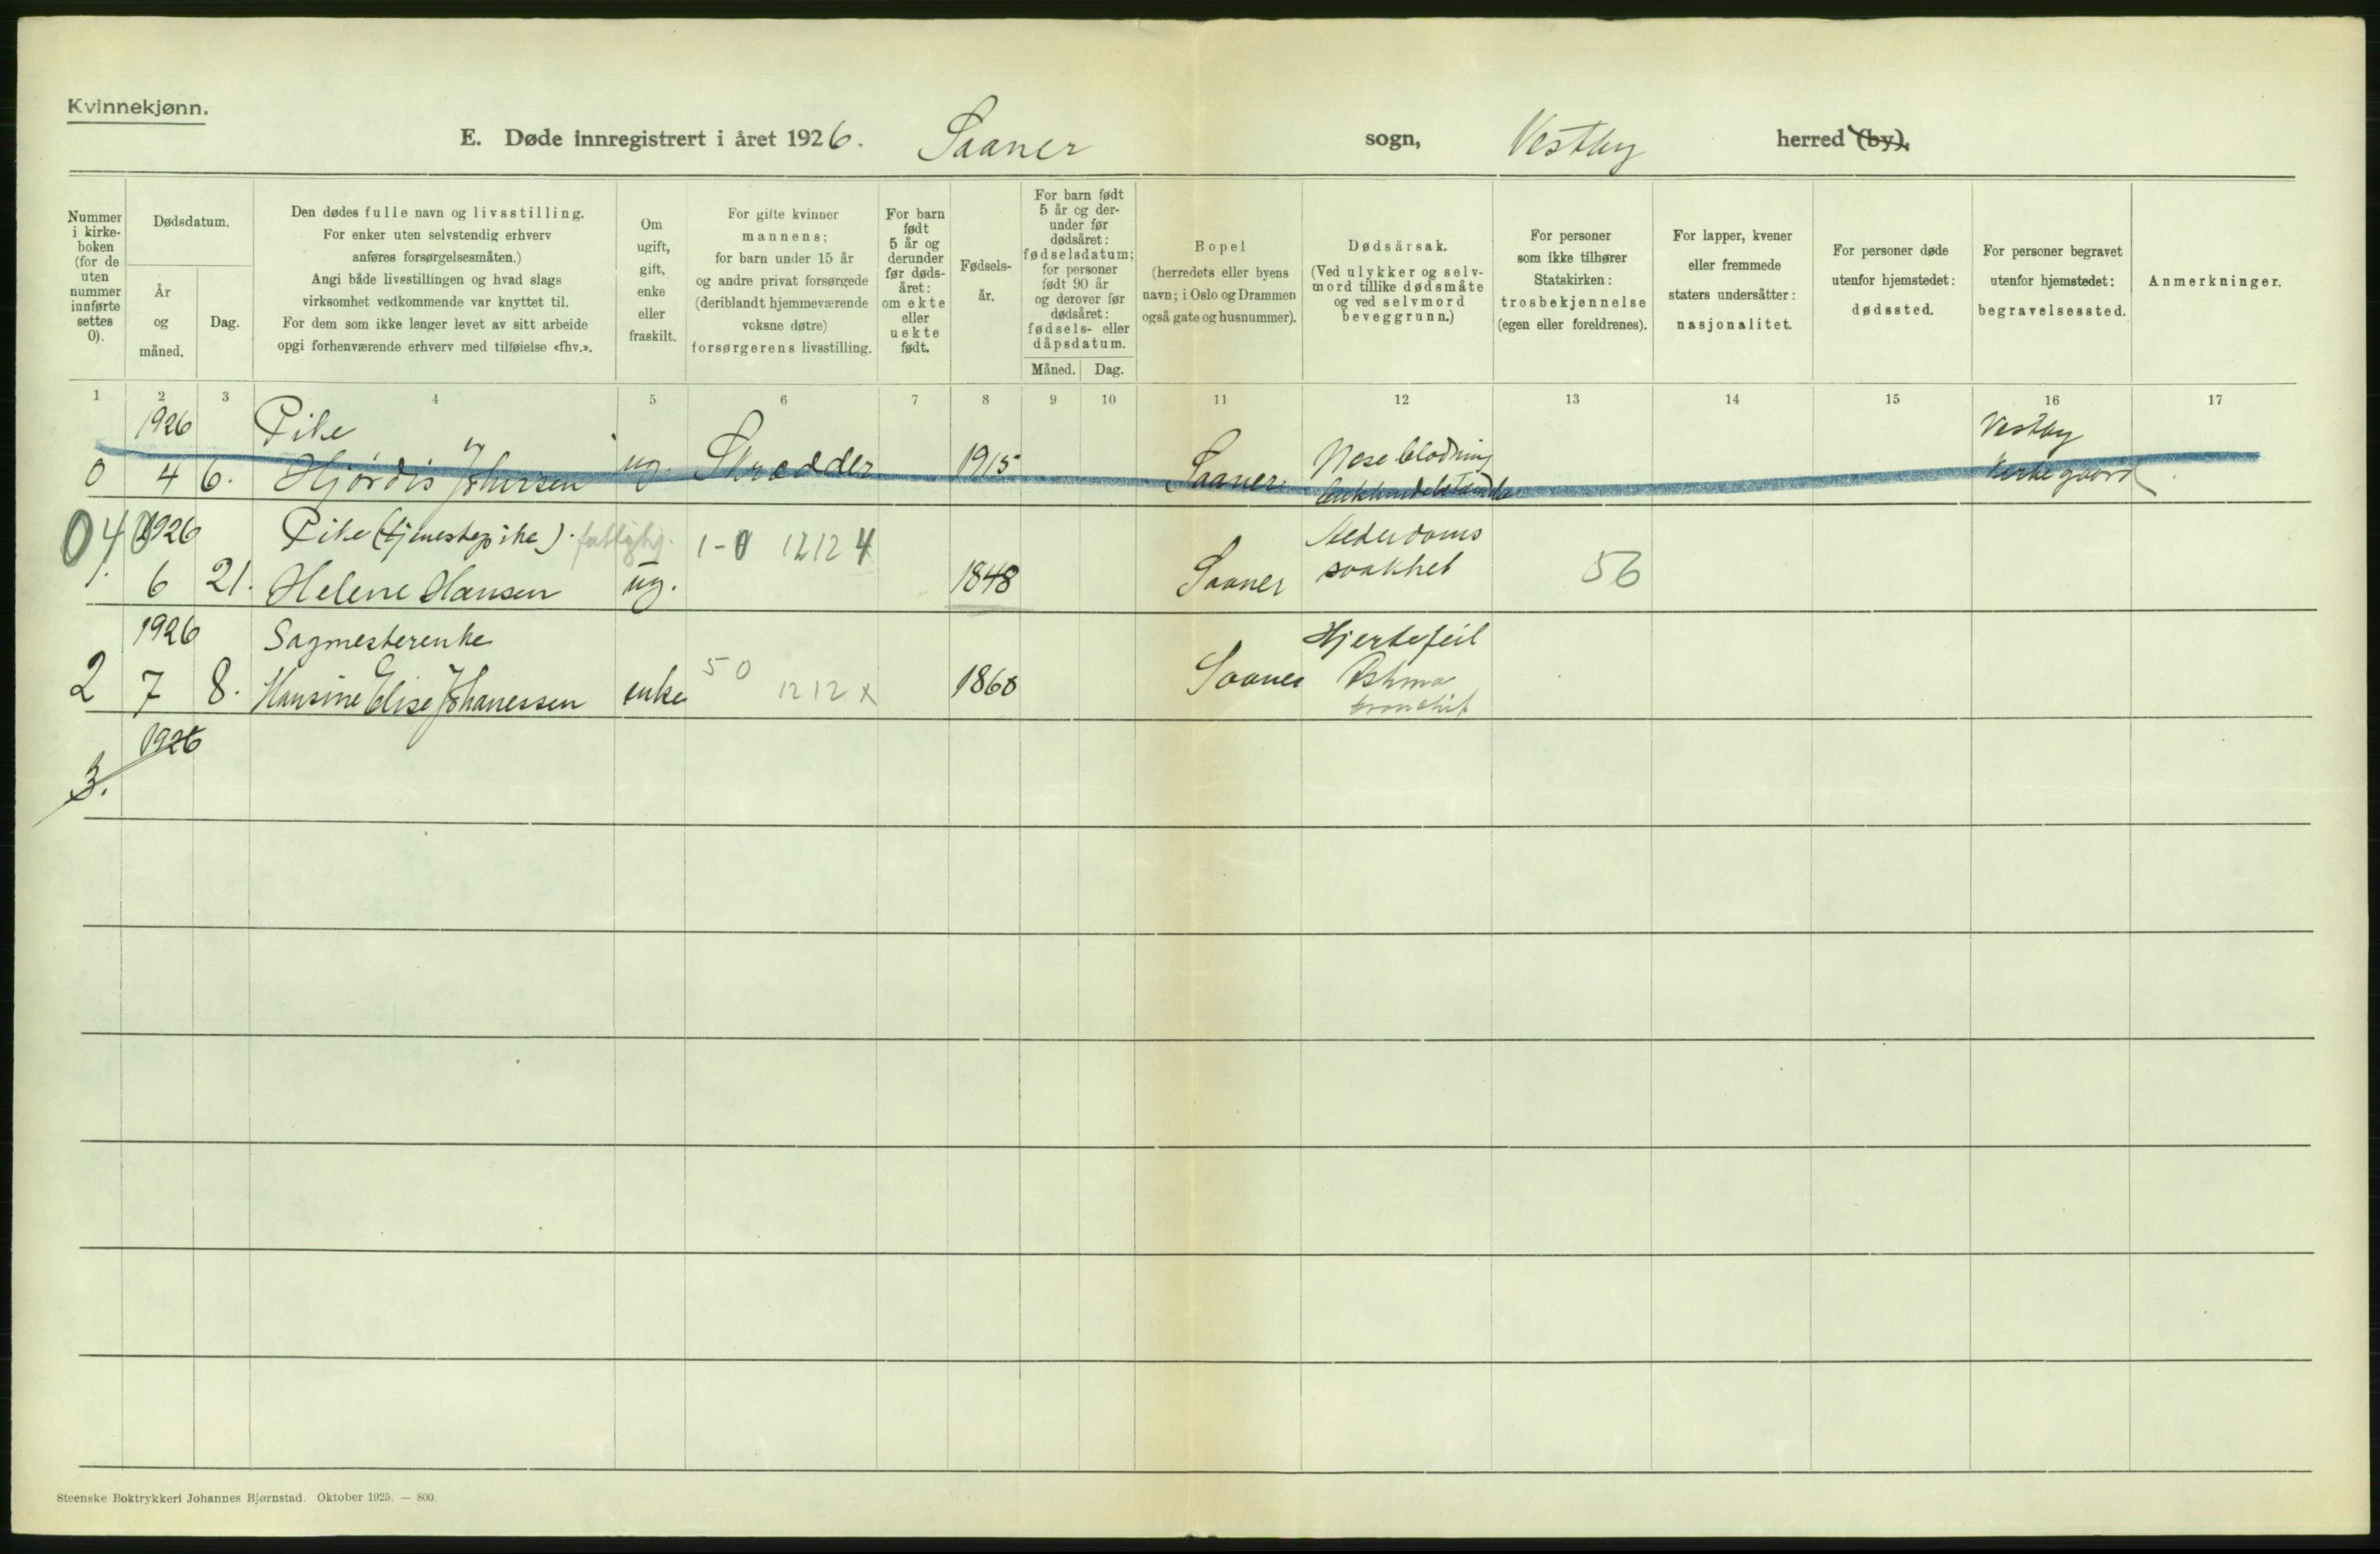 Kvinnekjønn.
E. Døde innregistrert i året 1926. Saaner sogn, Vestby herred (by).
Nummer i kirke-boken (for de uten nummer innførte settes 0).
Dødsdatum.
År og måned.
Dag.
Den dødes fulle navn og livsstilling.
For enker uten selvstendig erhverv
anføres forsørgelsesmåten.)
Angi både livsstillingen og hvad slags
virksomhet vedkommende var knyttet til.
For dem som ikke lenger levet av sitt arbeide
opgi forhenværende erhverv med tilføielse «fhv.».
Om ugift, gift, enke eller fraskilt.
For gifte kvinner
mannens;
for barn under 15 år
og andre privat forsørgede
(deriblandt hjemmeværende
voksne døtre)
forsørgerens livsstilling.
For barn født 5 år og derunder før døds-året: om ekte eller uekte født.
Fødsels-år.
For barn født
5 år og der-
under før
dødsåret:
fødselsdatum;
for personer
født 90 år
og derover før
dødsåret:
fødsels- eller
dåpsdatum.
Måned. Dag.
Bopel
(herredets eller byens
navn; i Oslo og Drammen
også gate og husnummer).
Dødsårsak.
(Ved ulykker og selv-
mord tillike dødsmåte
og ved selvmord
beveggrunn.)
For personer
som ikke tilhører
Statskirken:
trosbekjennelse
(egen eller foreldrenes).
For lapper, kvener
eller fremmede
staters undersåtter:
nasjonalitet.
For personer døde
utenfor hjemstedet:
dødssted.
For personer begravet
utenfor hjemstedet:
begravelsessted.
Anmerkninger.
1 2 3 4 5 6 7 8 9 10 11 12 13 14 15 16 17
1926 Pike Vestby
0 4 6. Hjørdis Johansen ug. Skrædder 1915 Saaner Neseblødning Kirkegaard
040 1926 Pike (tjenestepike). 1-0 1212 4 Alderdoms
1. 6 21. Helene Hansen ug. 1848 Saaner svakhet 56
1926 Sagmesterenke Hjertefeil
2 7 8. Hansine Elise Johanessen enke 50 1212 x 1868 Saaner Astma
bronchit
1926
3.
Steenske Boktrykkeri Johannes Bjørnstad. Oktober 1925. — 800.